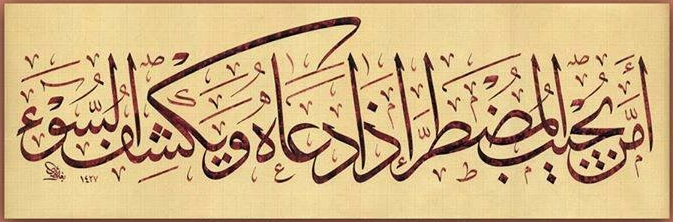 أَمَّن يُجِيبُ الْمُضْطَرَّ إِذَا دَعَاهُ وَيَكْشِفُ السُّوءَ
١٤٢٧